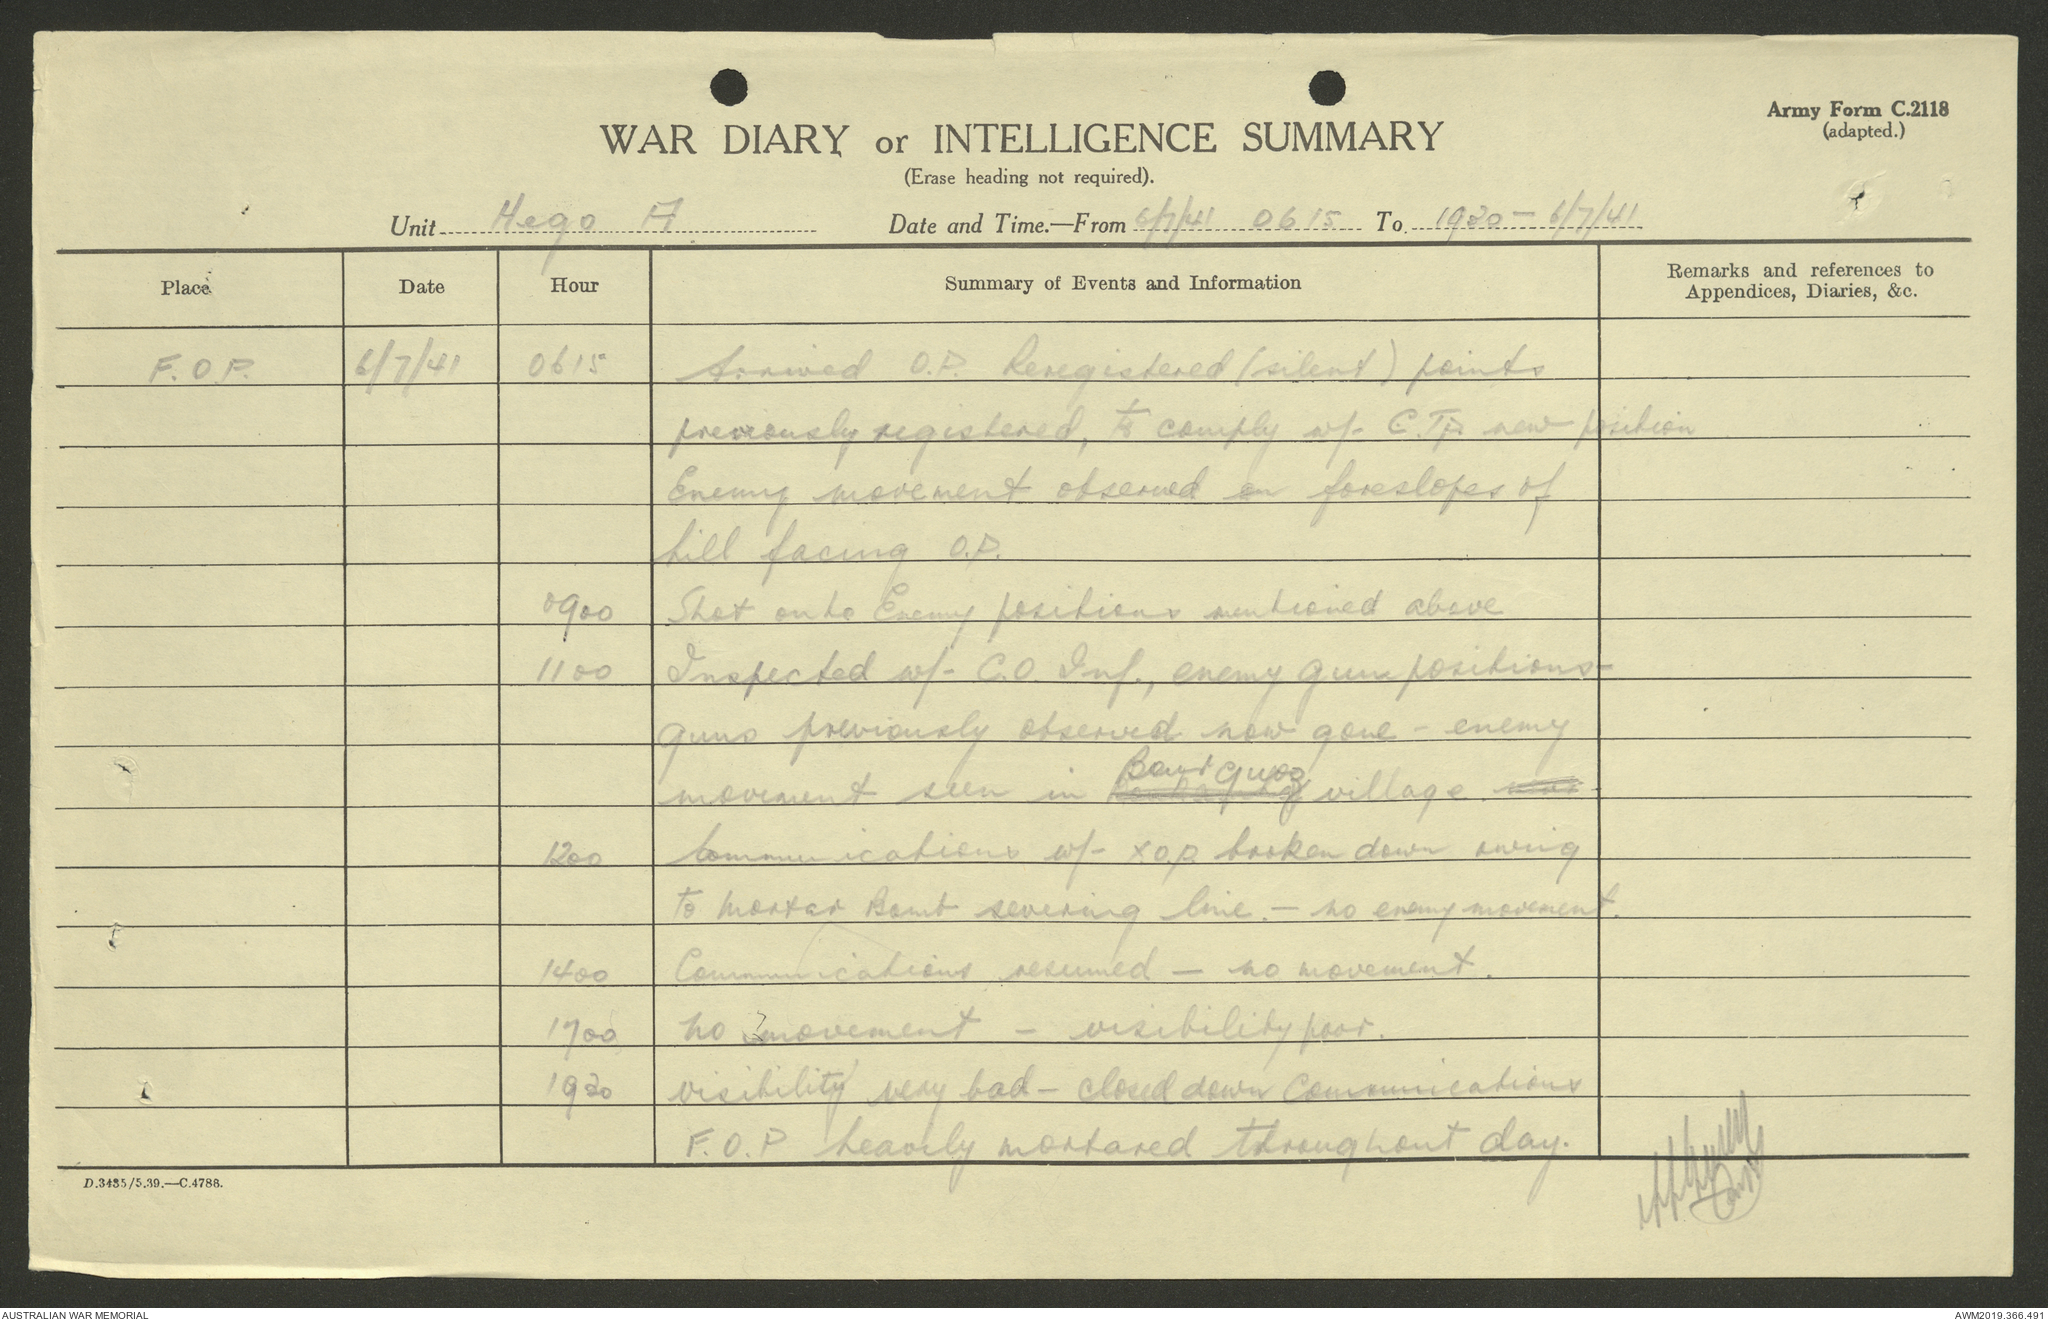 Army Form C.2118
(adapted.)
WAR DIARY or INTELLIGENCE SUMMARY
(Erase heading not required).
Unit Hego A Date and Time.—From 6/7/41 0615 To 1930 - 6/7/41
Place Date Hour Summary of Events and Information Remarks and references to
Appendices, Diaries, &c.
F.O.P. 6/7/41 0615 Arrived O.P. Reregistered (silent) points
previously registered, to comply w/- C.Tp. new position
Enemy movement observed on foreslopes of
hill facing O.P.
0900 Shot onto Enemy positions mentioned above
1100 Inspected w/- C.O. Inf., enemy gun positions -
guns previously observed now gone - enemy
movement seen in village.
1200 Communications w/- X O.P. broken down owing
to Mortar Bomb severing line. - no enemy movement.
1400 Communications resumed - no movement.
1700 No movement - visibility poor.
1930 visibility very bad - closed down communications
F.O.P heavily mortared throughout day.
D.3435/5.39.—C.4788.
AUSTRALIAN WAR MEMORIAL AWM2019.366.491